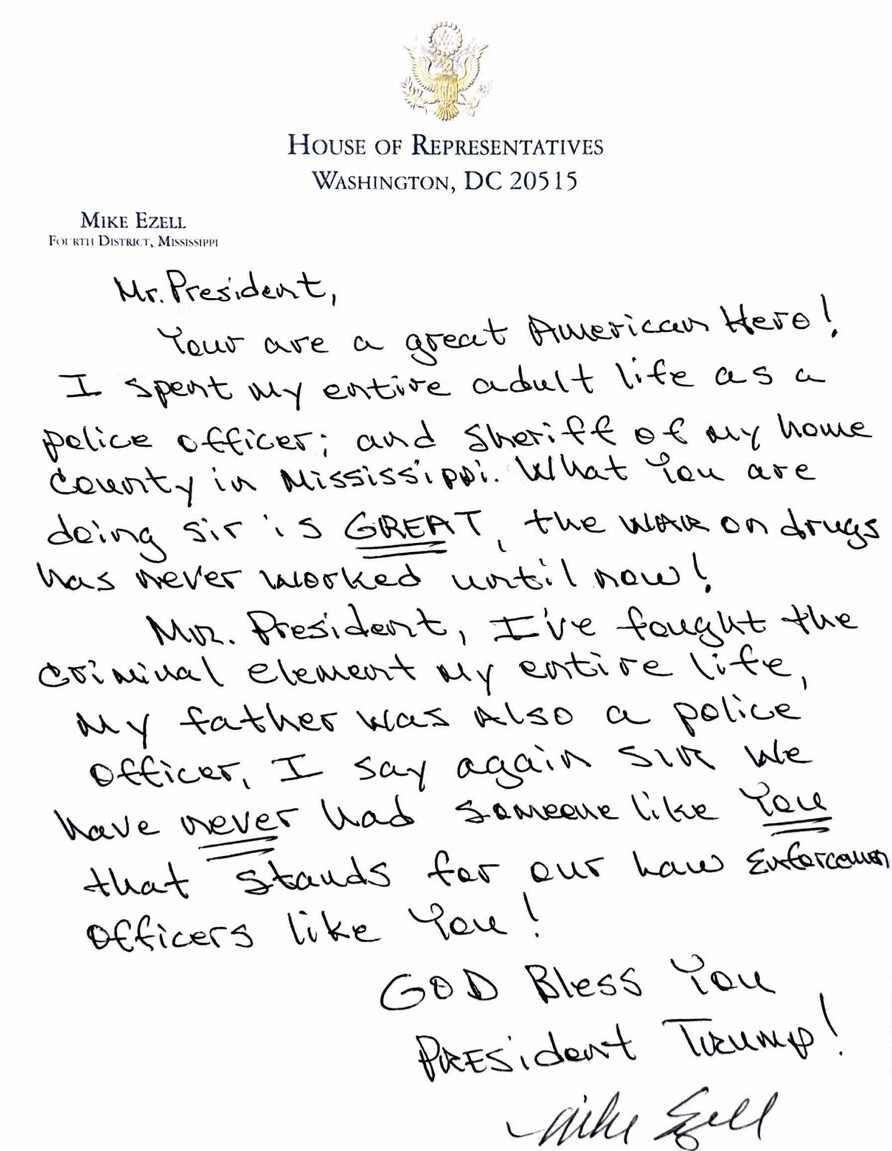 HOUSE OF REPRESENTATIVES
WASHINGTON, DC 20515
MIKE EZELL
FOURTH DISTRICT, MISSISSIPPI
Mr. President,
Your are a great American Hero!
I spent my entire adult life as a
police officer; and Sheriff of my home
County in Mississippi. What You are
doing sir is GREAT, the WAR on drugs
has never worked until now!
Mr. President, I've fought the
Criminal element my entire life,
My father was Also a police
officer, I say again SIR We
have never had someone like You
that stands for our Law Enforcemen
officers like You!
GOD Bless You
PRESident TRUMP!
Mike Ezell